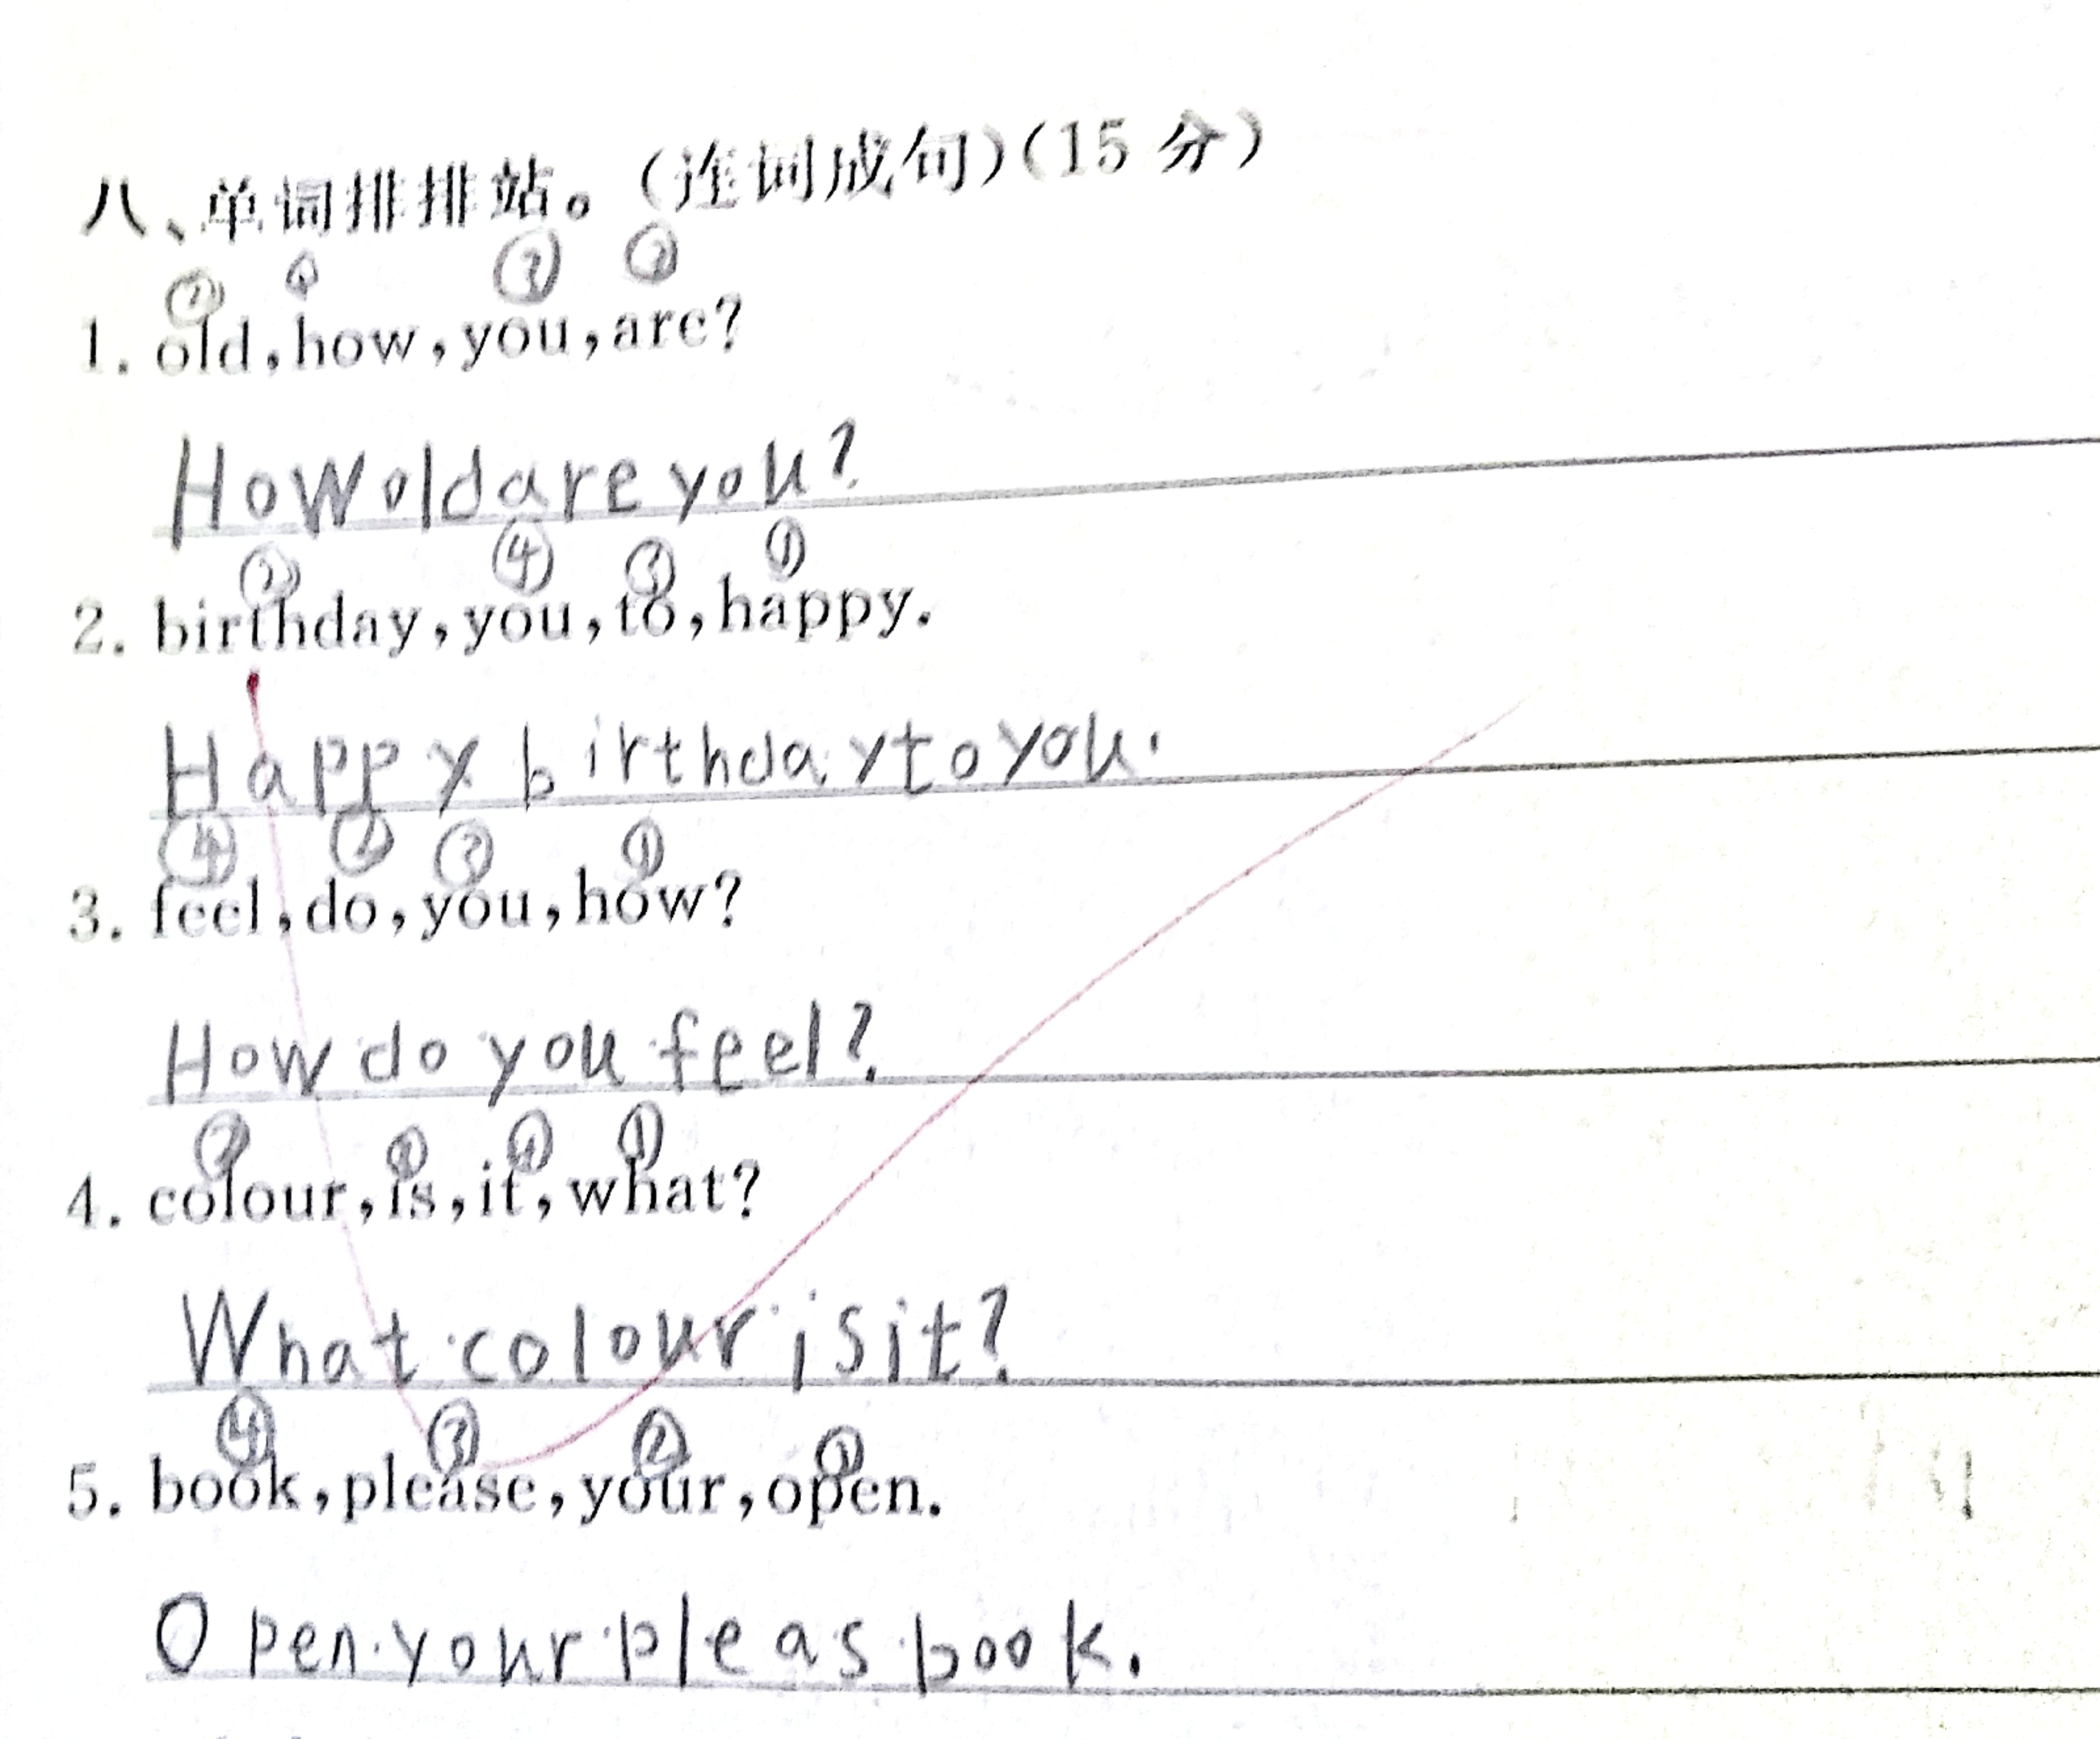 八、单词排排站。(连词成句)(15 分)
② ① ④ ③
1. old,how,you,are?
How old are you?
② ④ ③ ①
2. birthday,you,to,happy.
Happy birthday to you.
④ ② ③ ①
3. feel,do,you,how?
How do you feel?
② ③ ④ ①
4. colour,is,it,what?
What colour is it?
④ ③ ② ①
5. book,please,your,open.
Open your pleas book.